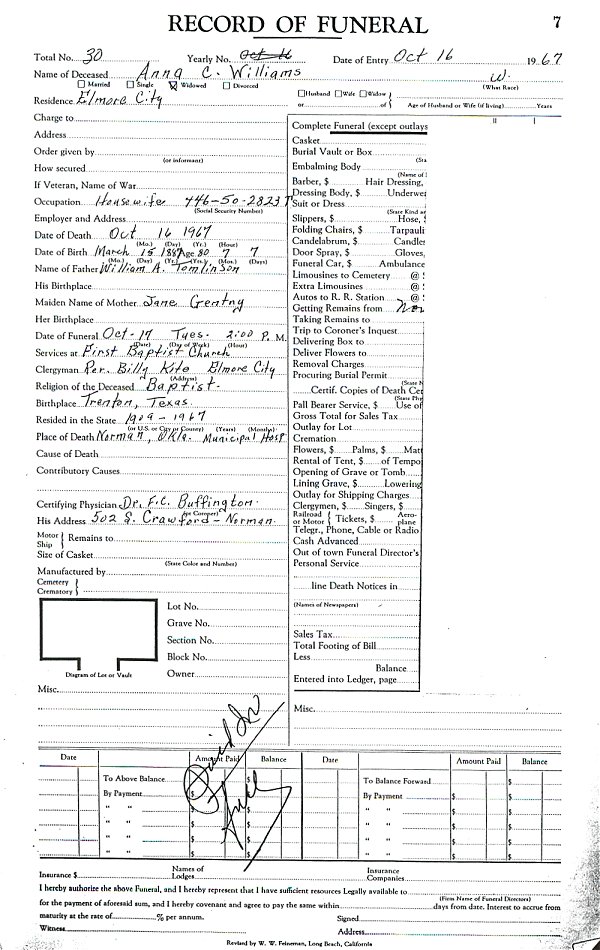 RECORD OF FUNERAL 7
Total No. 30 Yearly No. Oct 16 Date of Entry Oct 16 1967
Name of Deceased Anna C. Williams W.
Married Single Widowed Divorced Husband Wife Widow (What Race)
Residence Elmore City or of Age of Husband or Wife (if living) Years
Charge to
Address
Order given by
(or informant)
How secured
If Veteran, Name of War
Occupation Housewife 446-50-2823 T
(Social Security Number)
Employer and Address
Date of Death Oct 16 1967
(Mo.) (Day) (Yr.) (Hour)
Date of Birth March 15 1887 Age 80 7 7
(Mo.) (Day) (Yr.) (Yrs.) (Mos.) (Days)
Name of Father William A. Tomlinson
His Birthplace
Maiden Name of Mother Jane Gentny
Her Birthplace
Date of Funeral Oct-17 Tues. 2:00 P. M.
(Date) (Day of Week) (Hour)
Services at First Baptist Church
Clergyman Rer. Billy Kite Elmore City
(Address)
Religion of the Deceased Baptist.
Birthplace Trenton, Texas.
Resided in the State 1909 - 1967
(or U.S. or City or County) (Years) (Months)
Place of Death Norman, Okla. Municipal Hosp
Cause of Death
Contributory Causes
Certifying Physician Dr. F.C. Buffington.
(or Coroner)
His Address 502 S. Crawford - Norman.
Motor Ship Remains to
Size of Casket
(State Color and Number)
Manufactured by
Cemetery
Crematory
Lot No.
Grave No.
Section No.
Block No.
Owner
Diagram of Lot or Vault
Misc.
Complete Funeral (except outlays
Casket
Burial Vault or Box
(Sta
Embalming Body
(Name of
Barber, $ Hair Dressing,
Dressing Body, $ Underwe
Suit or Dress
(State Kind ar
Slippers, $ Hose,
Folding Chairs, $ Tarpauli
Candelabrum, $ Candle
Door Spray, $ Gloves,
Funeral Car, $ Ambulance
Limousines to Cemetery @
Extra Limousines @
Autos to R. R. Station @
Getting Remains from Nor
Taking Remains to
Trip to Coroner's Inquest
Delivering Box to
Deliver Flowers to
Removal Charges
Procuring Burial Permit
(State N
Certif. Copies of Death Cer
(State Phy
Pall Bearer Service, $ Use of
Gross Total for Sales Tax
Outlay for Lot
Cremation
Flowers, $ Palms, $ Matt
Rental of Tent, $ of Tempo
Opening of Grave or Tomb
Lining Grave, $ Lowering
Outlay for Shipping Charges
Clergymen, $ Singers, $
Railroad or Motor Tickets, $ Aero-plane
Telegr., Phone, Cable or Radio
Cash Advanced
Out of town Funeral Director's
Personal Service
line Death Notices in
(Names of Newspapers)
Sales Tax
Total Footing of Bill
Less
Balance
Entered into Ledger, page
Misc.
Date Amount Paid Balance Date Amount Paid Balance
To Above Balance $ To Balance Forward $
By Payment $ $ By Payment $ $
" " " "
" " " "
" " " "
" " " "
Paid In Full
Insurance $ Names of Lodges Insurance Companies
I hereby authorize the above Funeral, and I hereby represent that I have sufficient resources Legally available to
(Firm Name of Funeral Directors)
for the payment of aforesaid sum, and I hereby covenant and agree to pay the same within days from date. Interest to accrue from
maturity at the rate of % per annum. Signed
Witness Address
Revised by W. W. Feineman, Long Beach, California